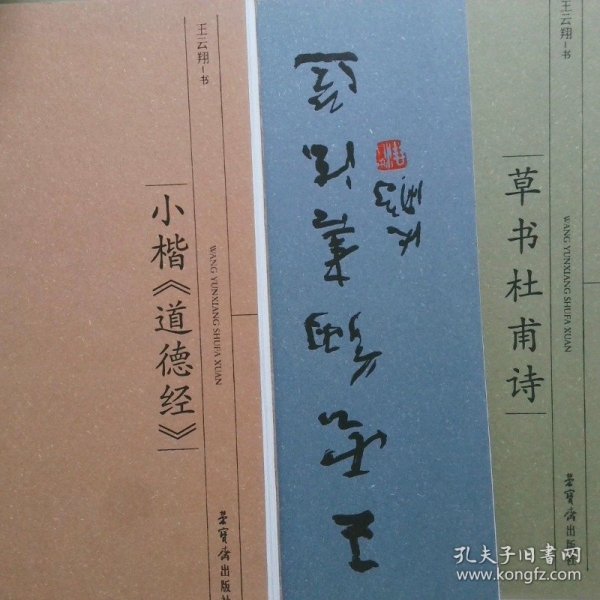 王云翔-书
小楷《道德经》
WANG YUNXIANG SHUFA XUAN
荣宝斋出版社
王云翔书法选
王云翔-书
草书杜甫诗
WANG YUNXIANG SHUFA XUAN
荣宝斋出版社
孔夫子旧书网
www.kongfz.com